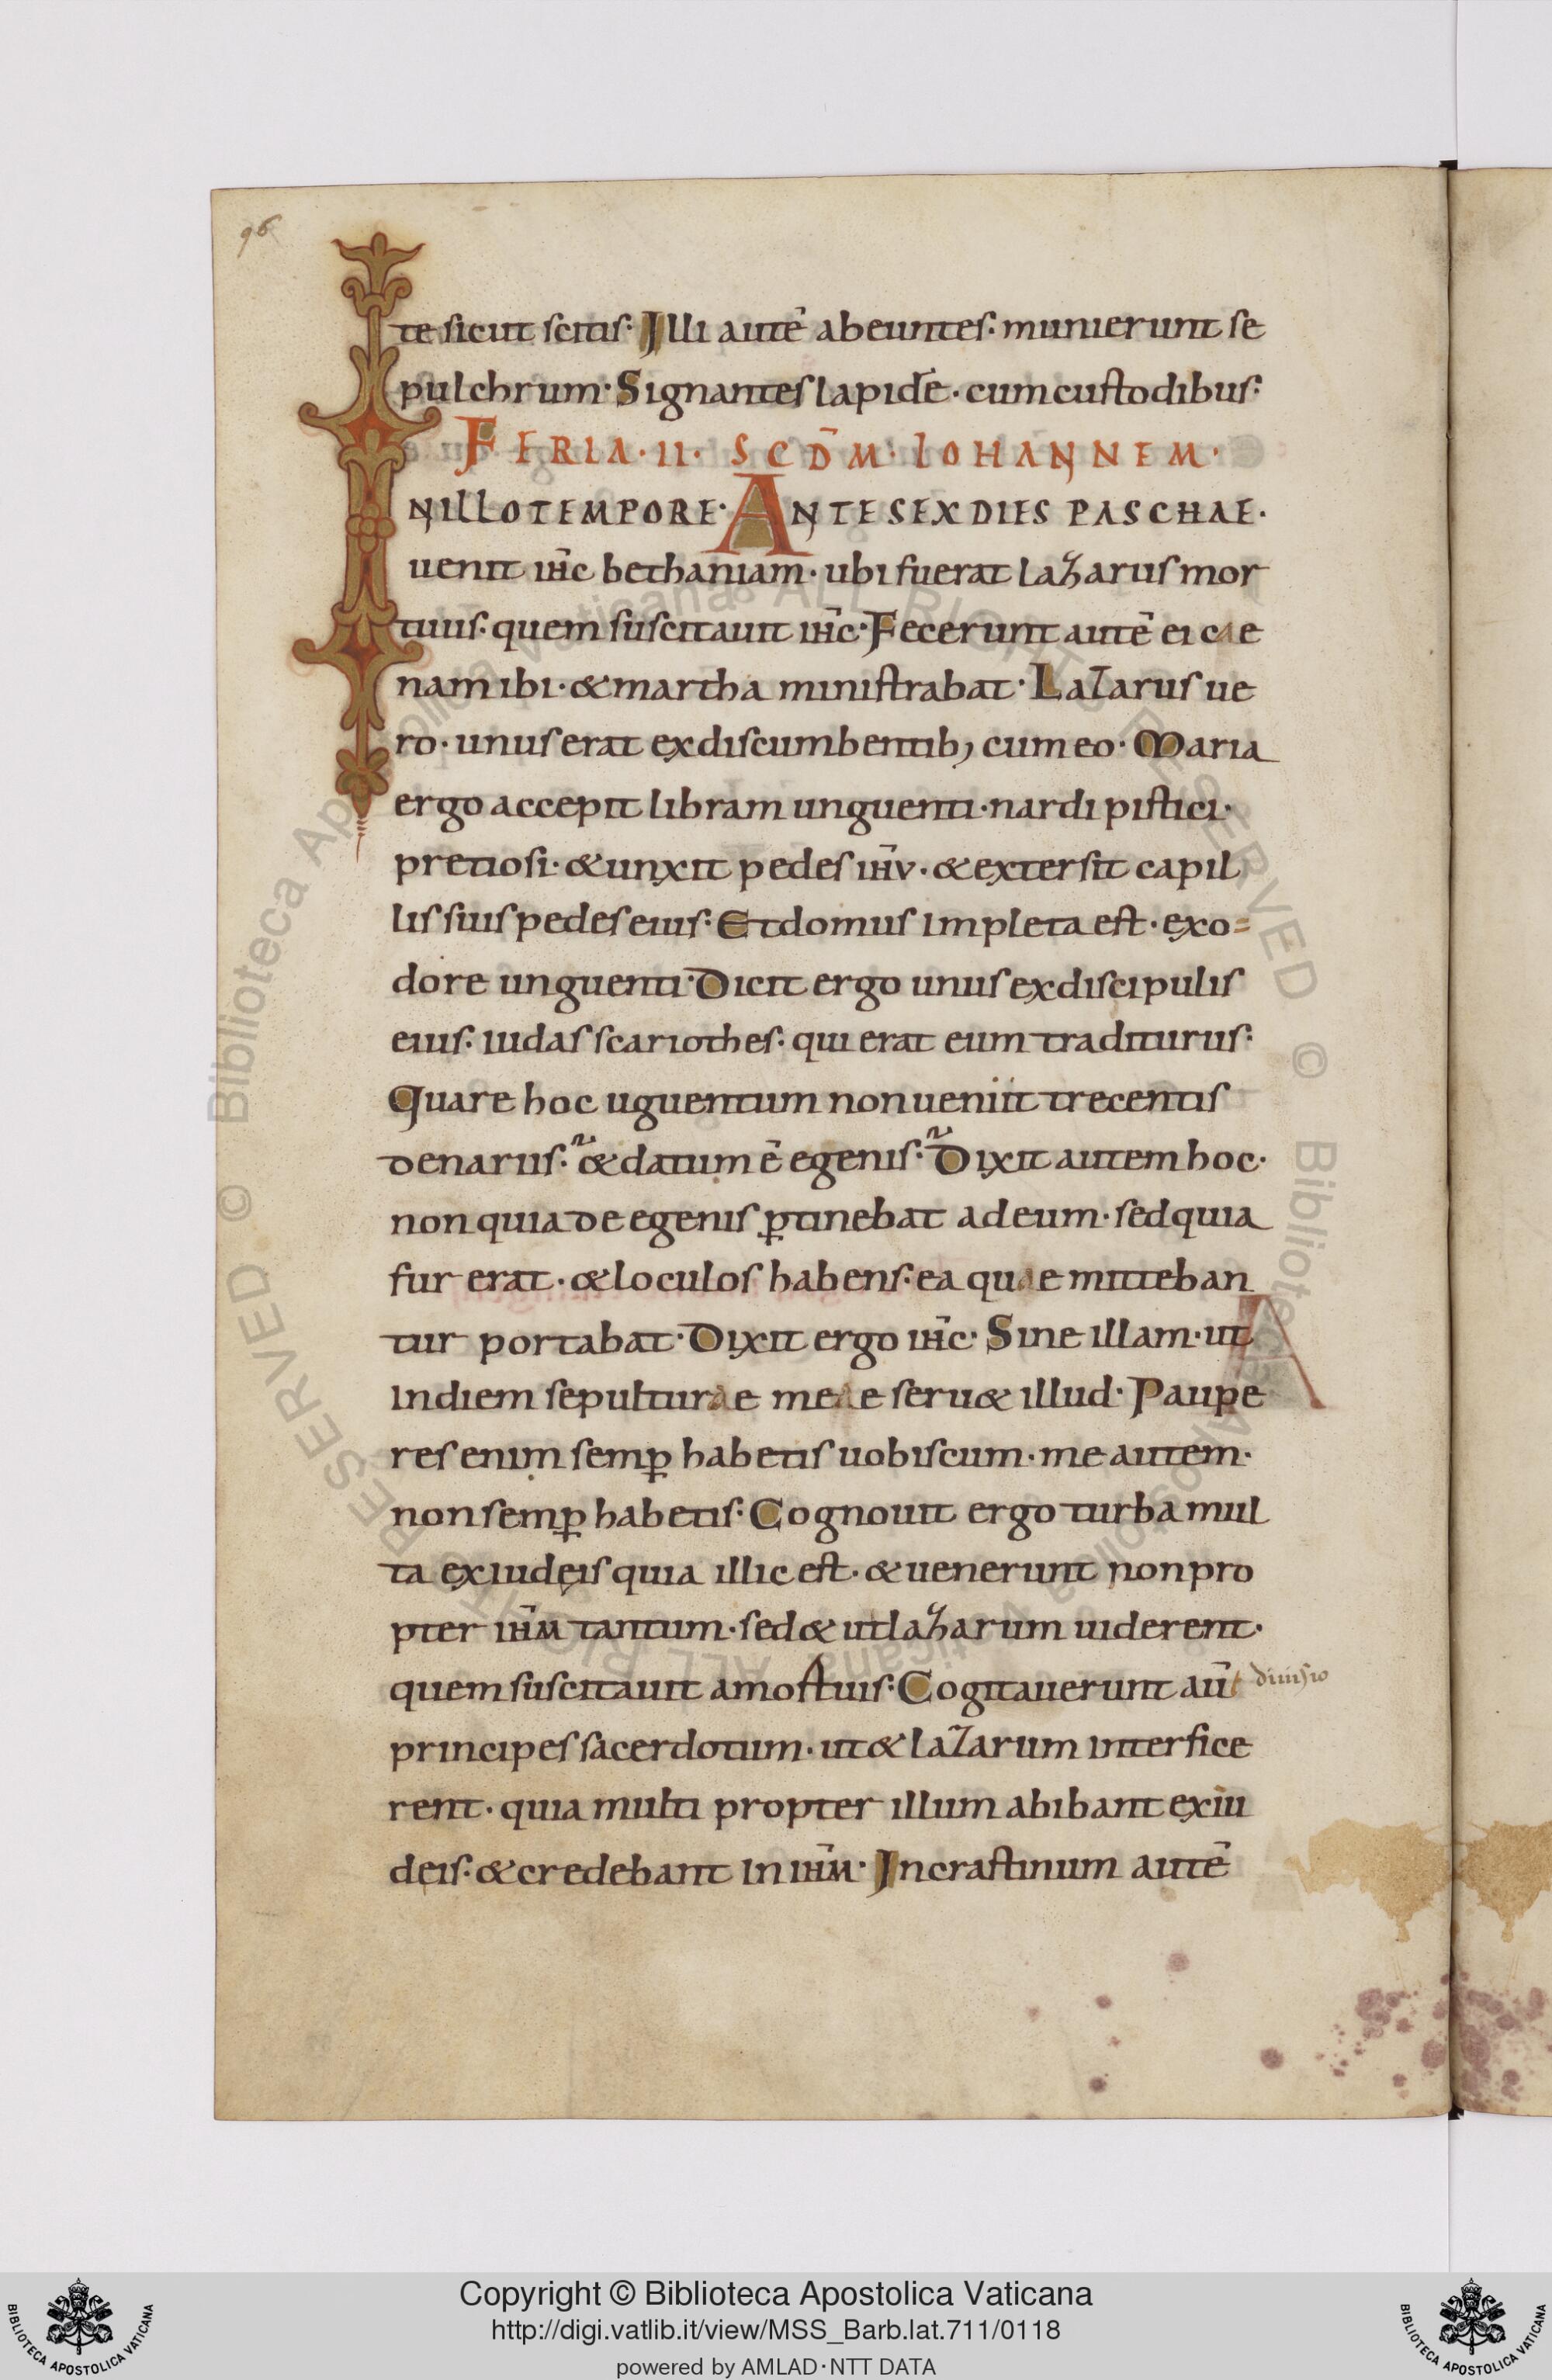 96
te sicut scitis· Illi autē abeuntes· munierunt se
pulchrum· Signantes lapidē· cum custodibus·
FERIA·II· SCD̄M· IOHANNEM·
IN ILLO TEMPORE· ANTE SEX DIES PASCHAE·
uenit ih̄c bethaniam· ubi fuerat lazarus mor
tuus· quem suscitauit ih̄c· Fecerunt autē ei cae
nam ibi· & martha ministrabat· Lazarus ue
ro· unus erat ex discumbentib; cum eo· Maria
ergo accepit libram unguenti· nardi pistici·
pretiosi· & unxit pedes ih̄v· & extersit capil
lis suis pedes eius· Et domus impleta est· exo=
dore unguenti· Dicit ergo unus ex discipulis
eius· iudas scariothes· qui erat eum traditurus·
Quare hoc uguentum non ueniit trecentis
denariis· & datum ē egenis· Dixit autem hoc·
non quia de egenis ꝑtinebat ad eum· sed quia
fur erat· & loculos habens· ea quae mitteban
tur portabat· Dixit ergo ih̄c· Sine illam· ut
in diem sepulturae meae seru& illud· Paupe
res enim semꝑ habetis uobiscum· me autem·
non semꝑ habetis· Cognouit ergo turba mul
ta ex iudęis quia illic est· & uenerunt non pro
pter ih̄m tantum· sed & ut lazarum uiderent·
quem suscitauit a mortuis· Cogitauerunt aūt diuisio
principes sacerdotum· ut & lazarum interfice
rent· quia multi propter illum abibant ex iu
deis· & credebant in ih̄m· In crastinum autē
© Biblioteca Apostolica Vaticana ALL RIGHTS RESERVED © Biblioteca Apostolica Vaticana ALL RIGHTS RESERVED
Copyright © Biblioteca Apostolica Vaticana
http://digi.vatlib.it/view/MSS_Barb.lat.711/0118
powered by AMLAD·NTT DATA
BIBLIOTECA APOSTOLICA VATICANA
BIBLIOTECA APOSTOLICA VATICANA